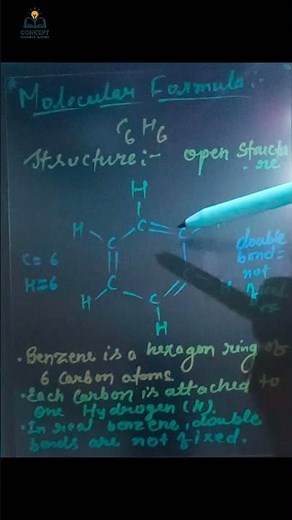 CONCEPT
Molecular Formula:-
C6H6
Structure:- open Structu
-re
H
H C C
double
C = 6 bond=
H = 6 C not
H C
H
• Benzene is a hexagon ring of
6 Carbon atoms.
• Each Carbon is attached to
one Hydrogen (H).
• In real benzene, double
bonds are not fixed.